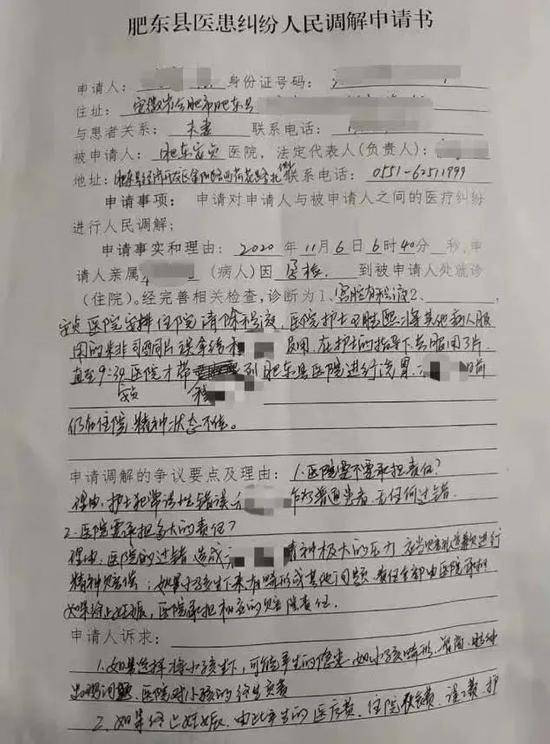 肥东县医患纠纷人民调解申请书
申请人： 身份证号码：
住址： 安徽省合肥市肥东县
与患者关系： 夫妻 联系电话：
被申请人： 肥东安贞 医院，法定代表人（负责人）：
地址： 肥东县经济开发区 联系电话： 0551-62511999
申请事项： 申请对申请人与被申请人之间的医疗纠纷
进行人民调解；
申请事实和理由： 2020 年 11 月 6 日 6 时 40 分 秒，申
请人亲属 （病人）因 孕检 到被申请人处就诊
（住院）。经完善相关检查，诊断为 1、宫腔有积液 2、
安贞 医院安排住院清除积液，医院护士 将其他病人服
用的米非司酮片误拿给 服用，在护士的指导下共服用了3片
直至9:30 医院才带 到肥东县医院进行洗胃， 目前
安贞
仍在住院 精神状态不佳。
申请调解的争议要点及理由： 1.医院需不需承担责任？
理由：护士犯常识性错误， 作为普通患者，无任何过错。
2.医院需承担多大的责任？
理由：医院的过错，造成 精神极大的压力，应当 进行
精神赔偿；如果小孩生下来有畸形或其他问题，责任全部由医院承担
如果终止妊娠，医院承担相应的赔偿责任。
申请人诉求：
1.如果选择将小孩生下，可能产生的隐患，如小孩畸形、智商、
问题，医院对小孩的终生负责
2.如果终止妊娠，由此产生的医疗费、住院 费、误工费、护